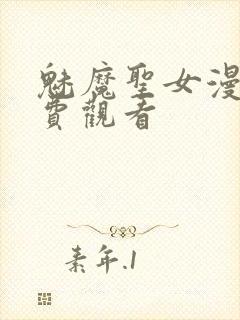 魅魔聖女漫
費觀看
素年.1